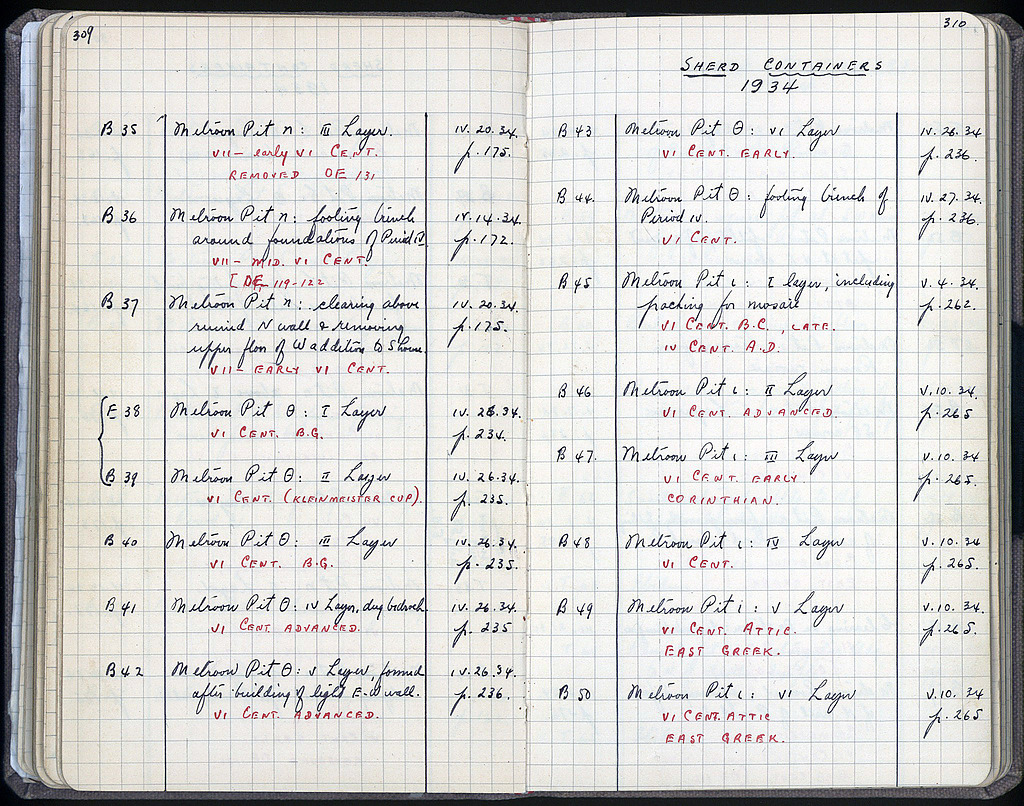 309
B 35 Metroon Pit η : III Layer. IV. 20. 34.
VII – early VI CENT. p. 175.
REMOVED OE 131
B 36 Metroon Pit η : footing trench IV. 14. 34.
around foundations of Period IV. p. 172.
VII – MID. VI CENT.
[OE 119-122
B 37 Metroon Pit η : clearing above IV. 20. 34.
ruined N wall & removing p. 175.
upper floor of W addition to S house.
VII – EARLY VI CENT.
E 38 Metroon Pit θ : I Layer IV. 26. 34.
VI CENT. B.G. p. 234.
B 39 Metroon Pit θ : II Layer IV. 26. 34.
VI CENT. (KLEINMEISTER CUP). p. 235.
B 40 Metroon Pit θ : III Layer IV. 26. 34.
VI CENT. B.G. p. 235.
B 41 Metroon Pit θ : IV Layer, dug bedrock IV. 26. 34.
VI CENT. ADVANCED. p. 235
B 42 Metroon Pit θ : V Layer, formed IV. 26. 34.
after building of light E-W wall. p. 236.
VI CENT. ADVANCED.
310
SHERD CONTAINERS
1934
B 43 Metroon Pit θ : VI Layer IV. 26. 34
VI CENT. EARLY. p. 236
B 44. Metroon Pit θ : footing trench of IV. 27. 34.
Period IV. p. 236.
VI CENT.
B 45 Metroon Pit ι : I layer, including V. 4. 34.
packing for mosaic p. 262.
VI CENT. B.C., LATE.
IV CENT. A.D.
B 46 Metroon Pit ι : II Layer V. 10. 34.
VI CENT. ADVANCED. p. 265
B 47. Metroon Pit ι : III Layer V. 10. 34
VI CENT. EARLY p. 265.
CORINTHIAN.
B 48 Metroon Pit ι : IV Layer V. 10. 34
VI CENT. p. 265.
B 49 Metroon Pit ι : V Layer V. 10. 34.
VI CENT. ATTIC. p. 265.
EAST GREEK.
B 50 Metroon Pit ι : VI Layer V. 10. 34
VI CENT. ATTIC p. 265
EAST GREEK.